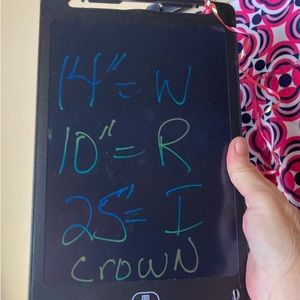 14" = W
10" = R
25" = I
CROWN